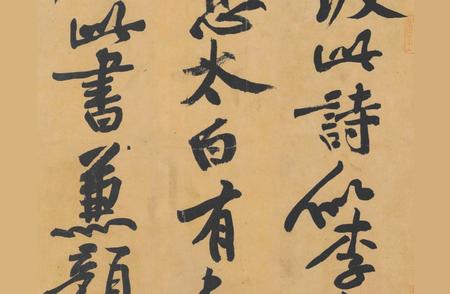 此詩似李
太白有
此書兼顏